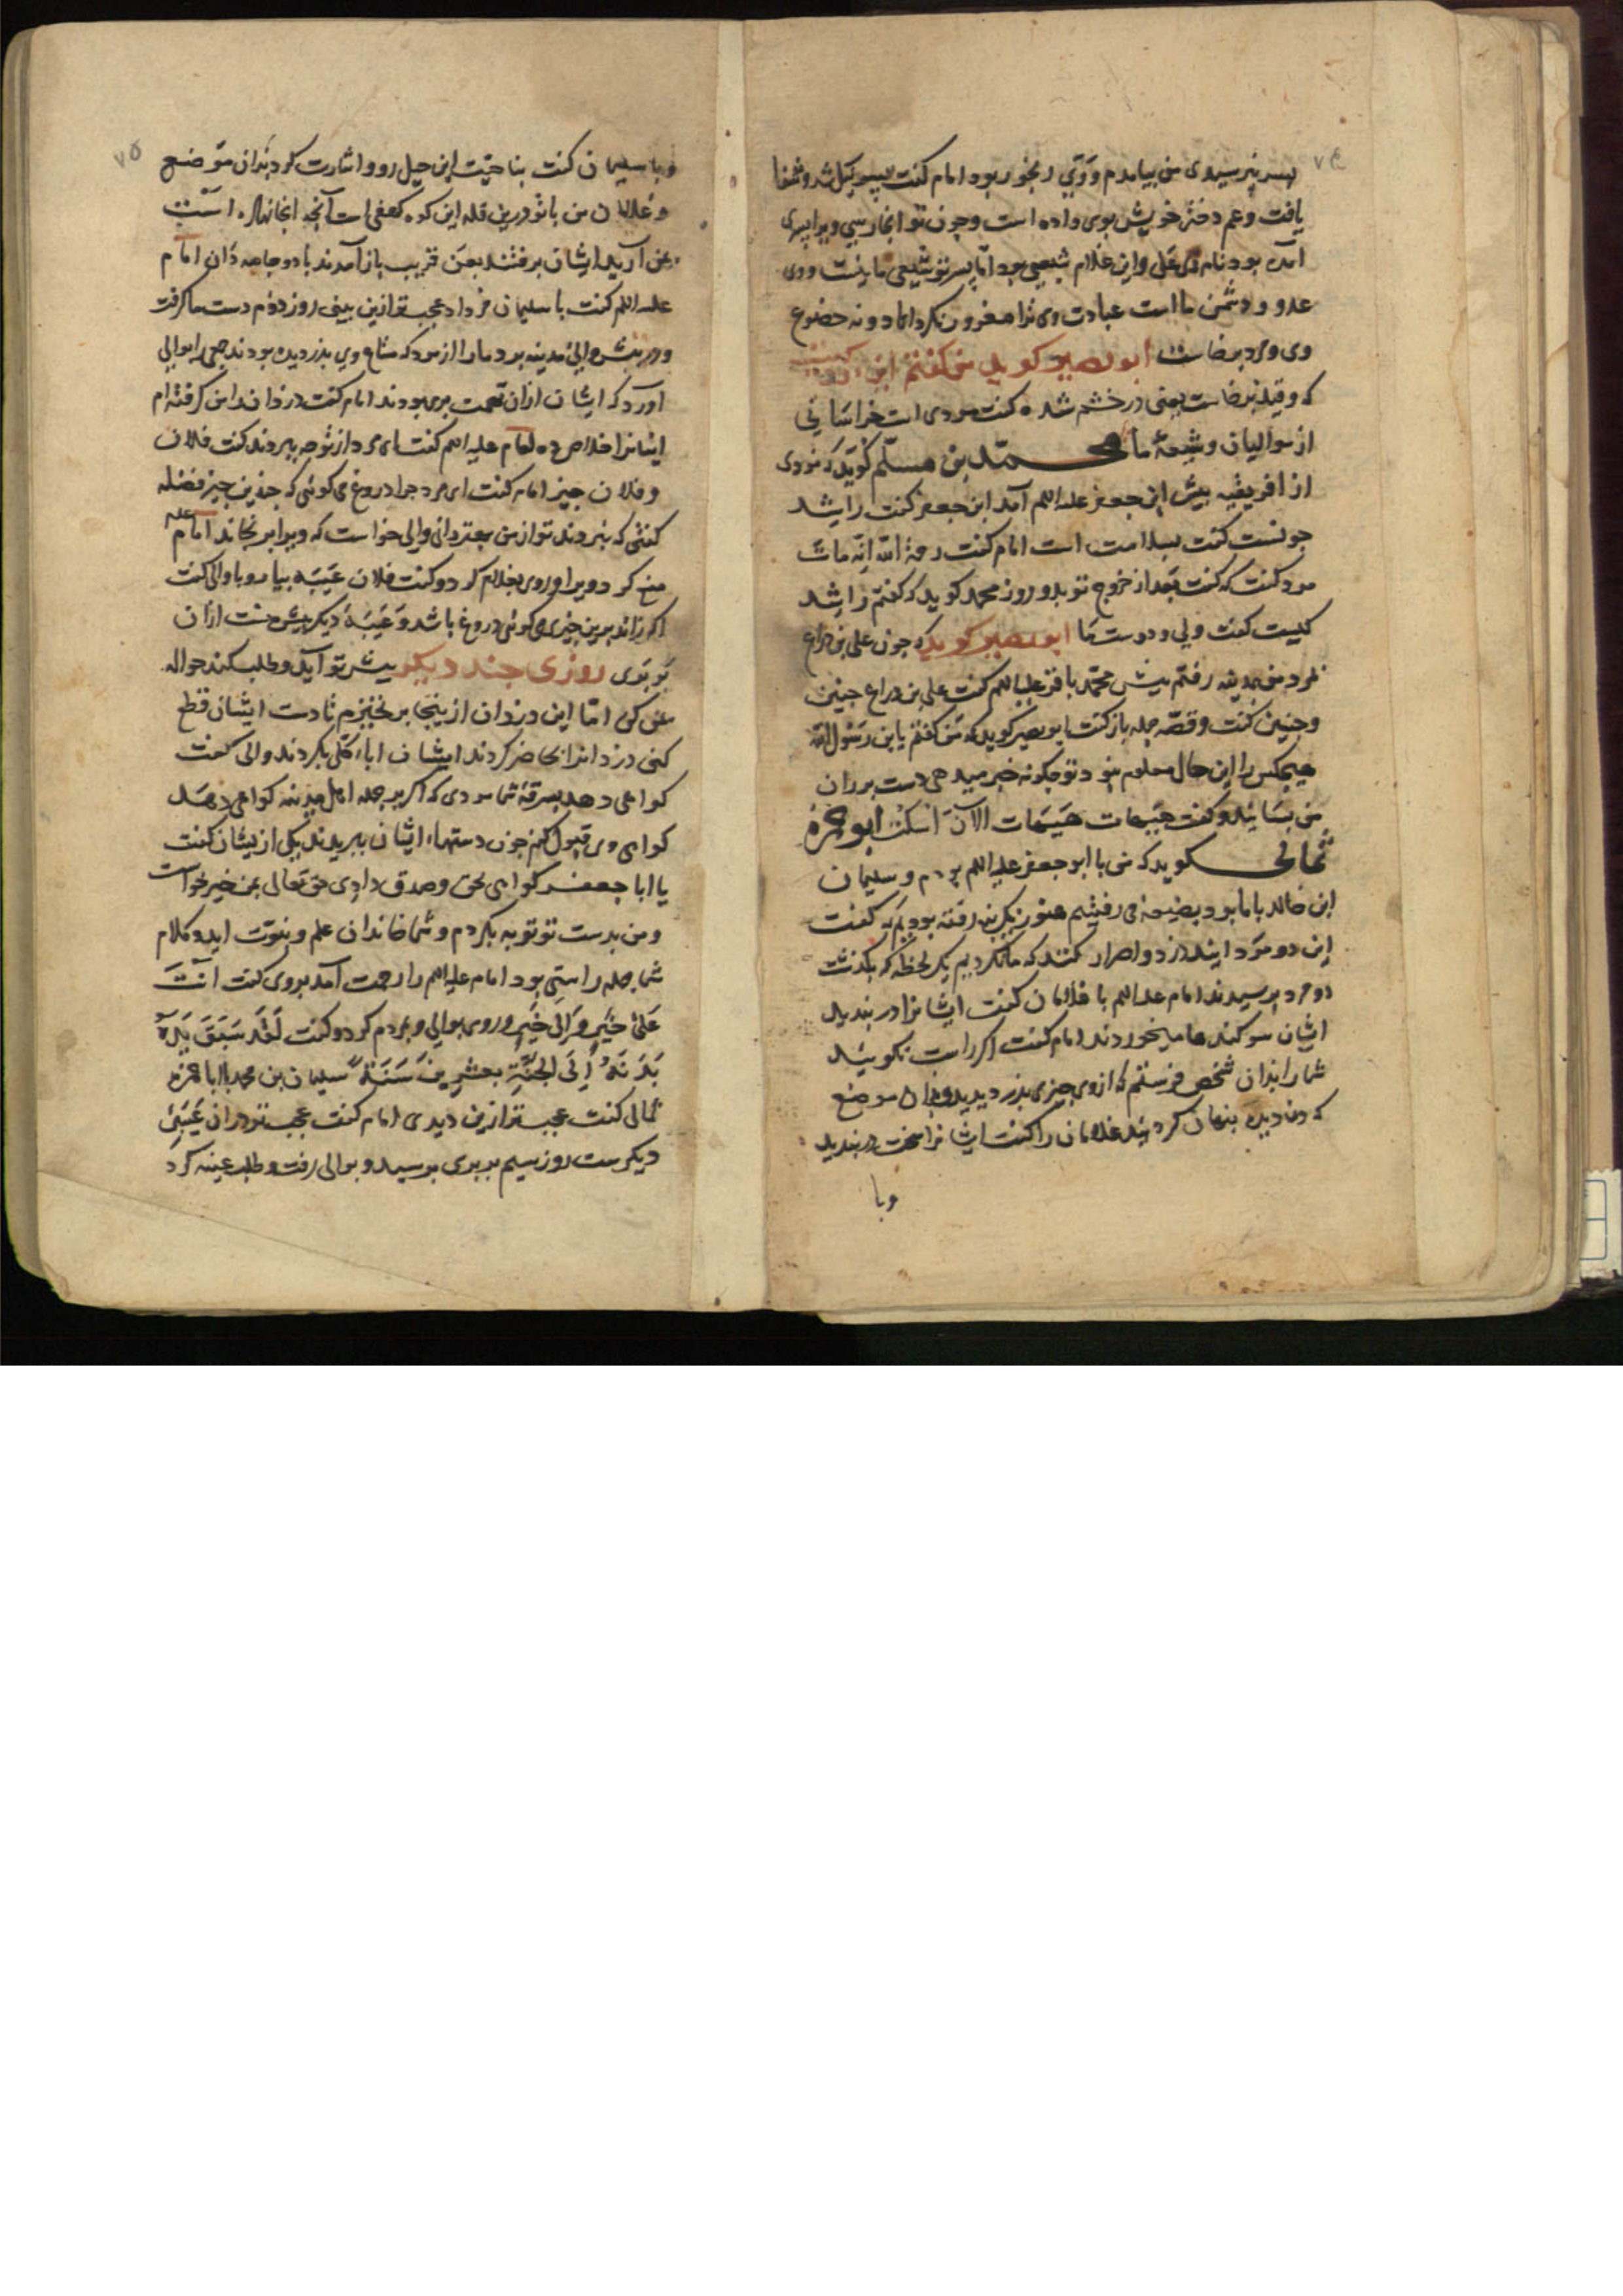 ۷۴
پسر نپرسیدی من بیامدم و وی رنجور بود امام کفت شد و شفا
یافت و عم دختر خویش بوی داده است و چون تو انجا رسی ویرا پسری
آمده بود نام وی علی و این غلام شیعی بود اما پسر تو شیعی ما نیست و وی
عدو و دشمن ما است عبادت وی ترا مغرور نکرداناد و نه خضوع
وی مرد برخاست ابو بصیر کوید من کفتم این کیست
که وقید برخاست یعنی در خشم شده کفت مردی است خراسانی
از موالیان و شیعهٔ ما محمّد بن مسلّم کوید که مردی
از افریقیه پیش ابن جعفر علیه اللم آمد ابن جعفر کفت راشد
چونست کفت بسلامت است امام کفت رحمة الله انّه مات
مرد کفت که کفت بعد از خروج تو بدو روز محمد کوید که کفتم راشد
کیست کفت ولی و دوست ما ابو بصیر کوید که چون علی بن دراع
بمرد من بمدینه رفتم پیش محمّد باقر علیه اللم کفت علی بن دراع چنین
و چنین کفت و قصّه جمله باز کفت ابو بصیر کوید که من کفتم یابن رسول الله
هیچکس را این حال معلوم نبود تو چکونه خبر میدهی دست بر ران
من بسائید و کفت هیهات هیهات الآن اسکت ابو حمزه
ثمالی کوید که من با ابو جعفر علیه اللم بودم و سلیمان
ابن خالد با ما بود بضیعه می رفتیم هنوز رفته بودیم که کفت
این دو مرد ایند دزد و اصرار کنند که ما نکردیم یک لحظه که بکذشت
دو مرد برسیدند امام علیه اللم با غلامان کفت ایشانرا در بندید
ایشان سوکندها میخوردند امام کفت اکر راست نکویید
شما را بدان شخص فرستم که از وی چیزی بدزدیدید و بدان موضع
که دزدیده پنهان کردید غلامان را کفت ایشانرا سخت در بندید
وبا
۷۵
و با سلیمان کفت بناحیت این جبل رو و اشارت کرد بدان موضع
و غلامان من با تو در بن قله این کوه کهفی است آنچه انجا نهاده است
بمن آرید ایشان برفتند بعن قریب باز آمدند با دو جامه دان امام
علیه اللم کفت با سلیمان فردا عجبتر ازین بینی روز دوم دست ما کرفت
و در پیش والیٔ مدینه برد مارا از مرد که متاع وی بدزدیده بودند جمعی را بوالی
آورد که ایشان از ان تهمت بری بودند امام کفت دزدان را من کرفته ام
اینانرا خلاص ده امام علیه اللم کفت ای مرد از تو چه ببردند کفت فلان
و فلان چیز امام کفت ای مرد چرا دروغ می کوئی که چندین چیز فضله
کفتی که نبردند تو از من بهتر دانی والی خواست که ویرا برنجاند امام علیه
منع کرد ویرا و روی بغلام کرد و کفت فلان عیبه بیار و با والی کفت
اکر زاید برین چیزی کوئی دروغ باشد و عیبهٔ دیکر پیش منست از ان
بربری روزی چند دیکر پیش تو آید و طلب کند حواله
بمن کن اما این دزدان از ینجا برنخیزم تا دست ایشان قطع
کنی دزدانرا حاضر کردند ایشان اباء کلی بکردند والی کفت
کواهی دهد بسرقهٔ شما مردی که اکر بر جمله اهل مدینه کواهی دهد
کواهی وی قبول کنم چون دستهاء ایشان ببریدند یکی از یشان کفت
یا ابا جعفر کواهی بحق و صدق دادی حق تعالی بمن خیر خواست
و من بدست تو توبه بکردم و شما خاندان علم و نبوّت اید و کلام
شما جمله راستی بود امام علیه اللم را رحمت آمد بروی کفت انتَ
عَلیٰ خَیرٍ وَ الی خَیرٍ و روی بوالی و بمردم کرد و کفت لَقَد سَبَقَ یَدَهُ
بَدَنَهُ اِلَی الجَنَّةِ بعشرینَ سَنَةً سلیمان بن محمد با ابا حمزه
ثمالی کفت عجبتر ازین دیدی امام کفت عجبتر در ان عیبهٔ
دیکرست روز سیم بربری برسید و بوالی رفت و طلب عیبه کرد